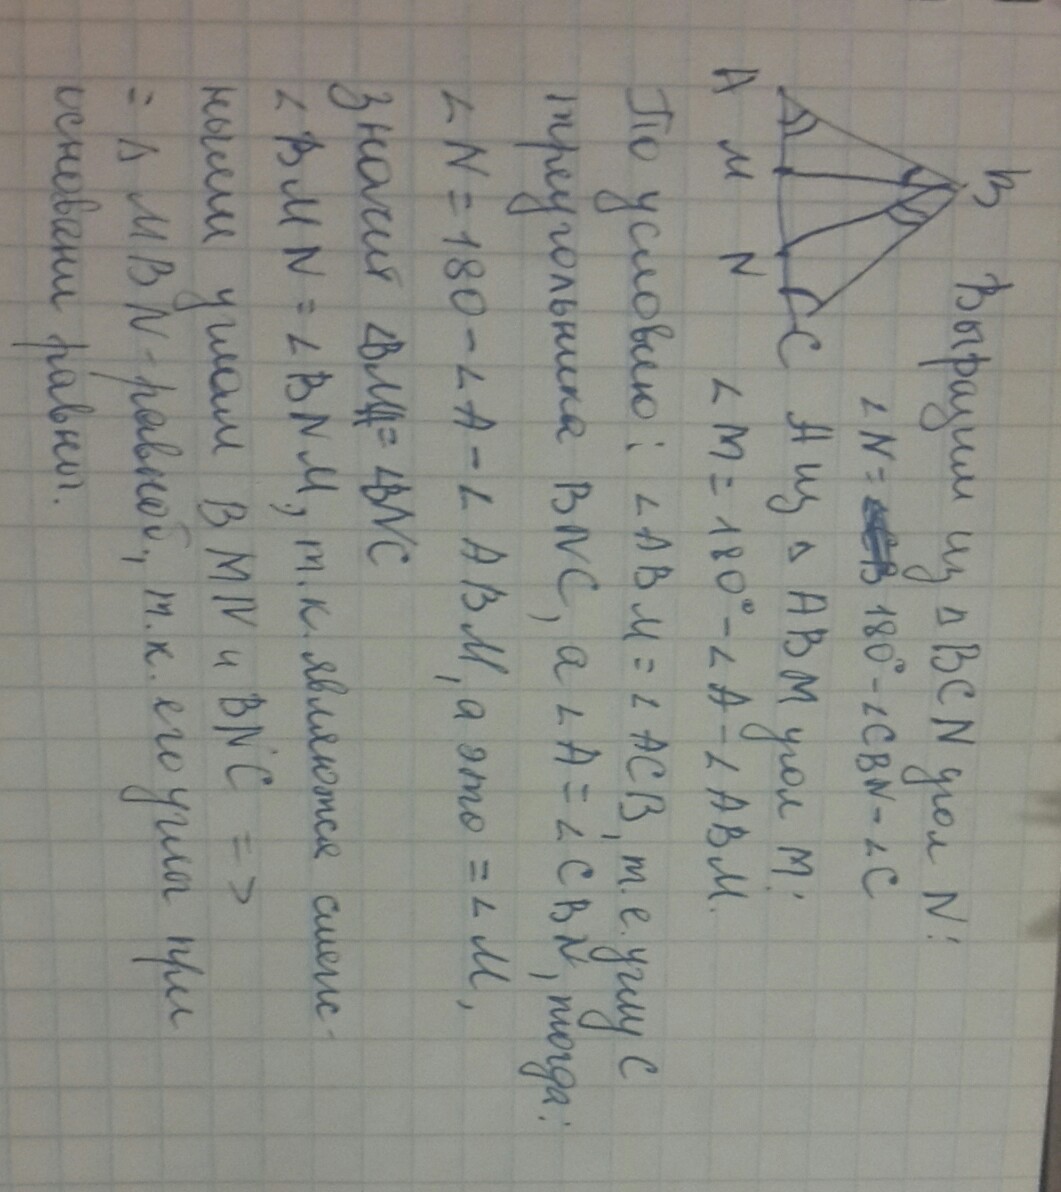 B
Выразим из △ BCN угол N:
∠N = 180° - ∠CBN - ∠C
A M N C
А из △ ABM угол M:
∠M = 180° - ∠A - ∠ABM.
По условию: ∠ABM = ∠ACB, т.е. углу C
треугольника BNC, а ∠A = ∠CBN, тогда:
∠N = 180 - ∠A - ∠ABM, а это = ∠M,
Значит = ∠BNC
∠BMN = ∠BNM, т.к. являются смеж-
ными углам BMN и BNC =>
= △ MBN - равноб, т.к. его углы при
основании равны.